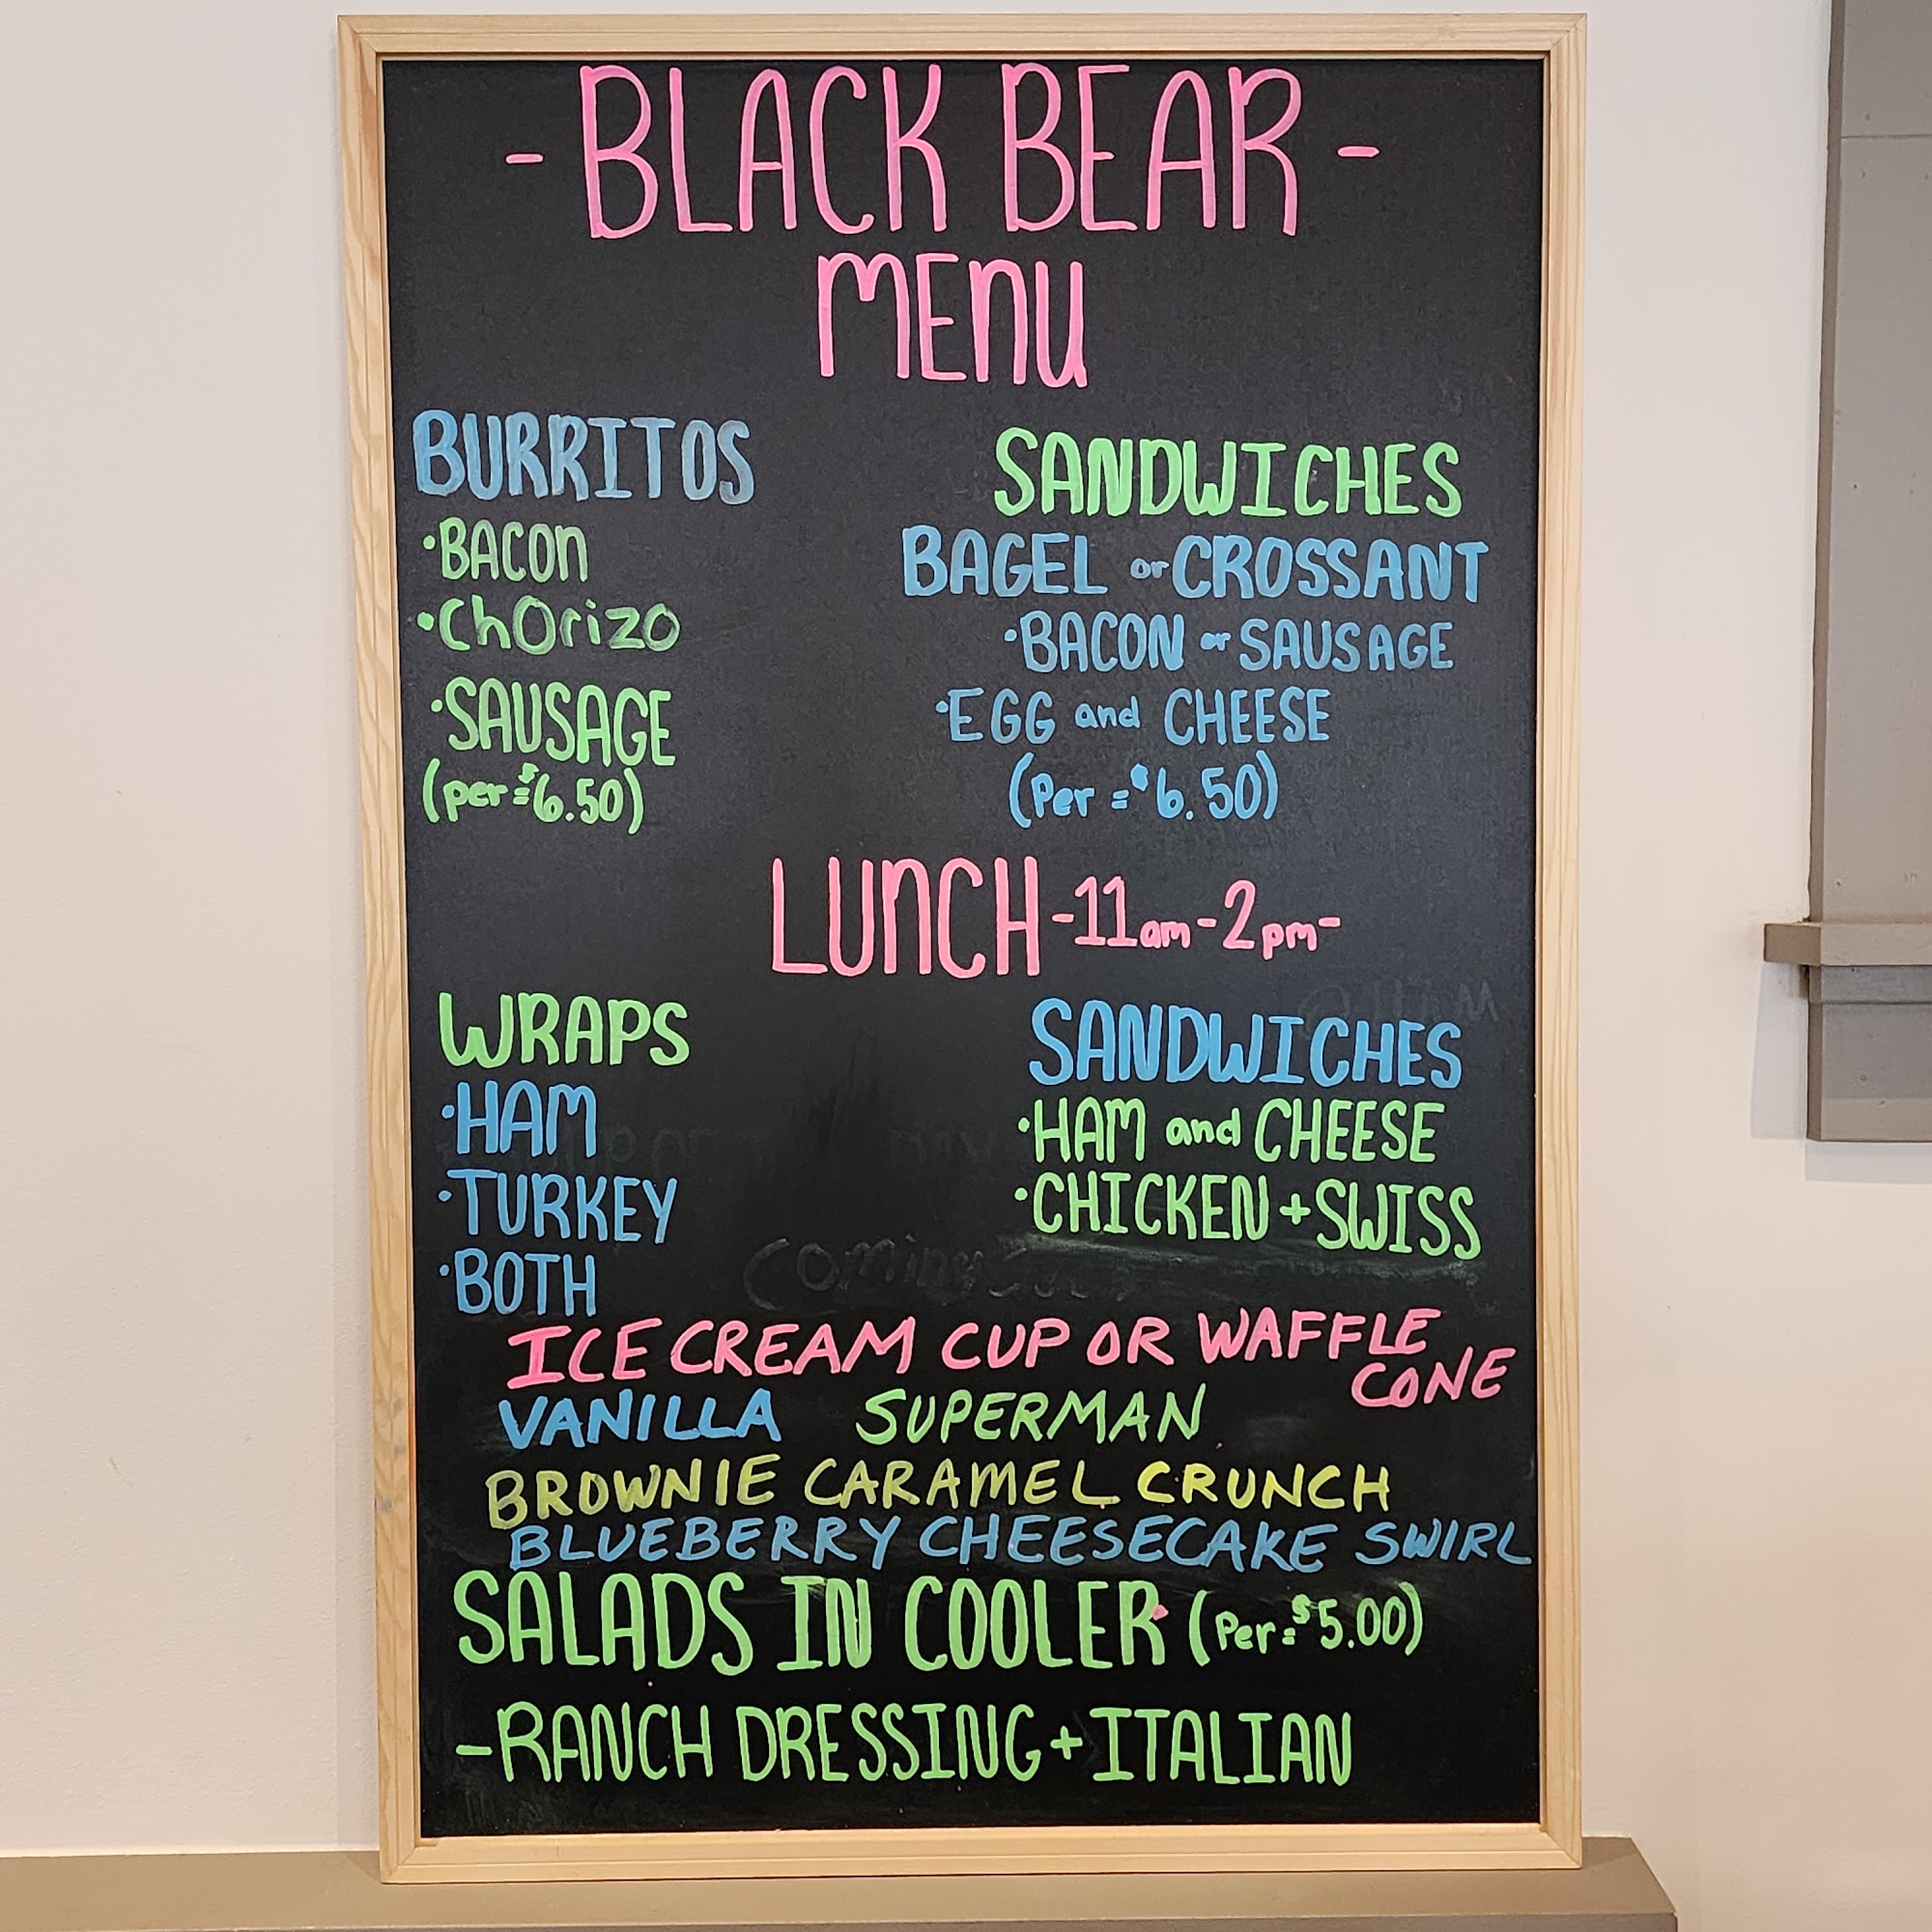 - BLACK BEAR -
MENU
BURRITOS
·BACON
·ChOrizo
·SAUSAGE
(per=$6.50)
SANDWICHES
BAGEL or CROSSANT
·BACON or SAUSAGE
·EGG and CHEESE
(Per = $6.50)
LUNCH -11am-2pm-
WRAPS
·HAM
·TURKEY
·BOTH
SANDWICHES
·HAM and CHEESE
·CHICKEN + SWISS
Coming
ICE CREAM CUP OR WAFFLE
CONE
VANILLA SUPERMAN
BROWNIE CARAMEL CRUNCH
BLUEBERRY CHEESECAKE SWIRL
SALADS IN COOLER (Per=$5.00)
-RANCH DRESSING + ITALIAN